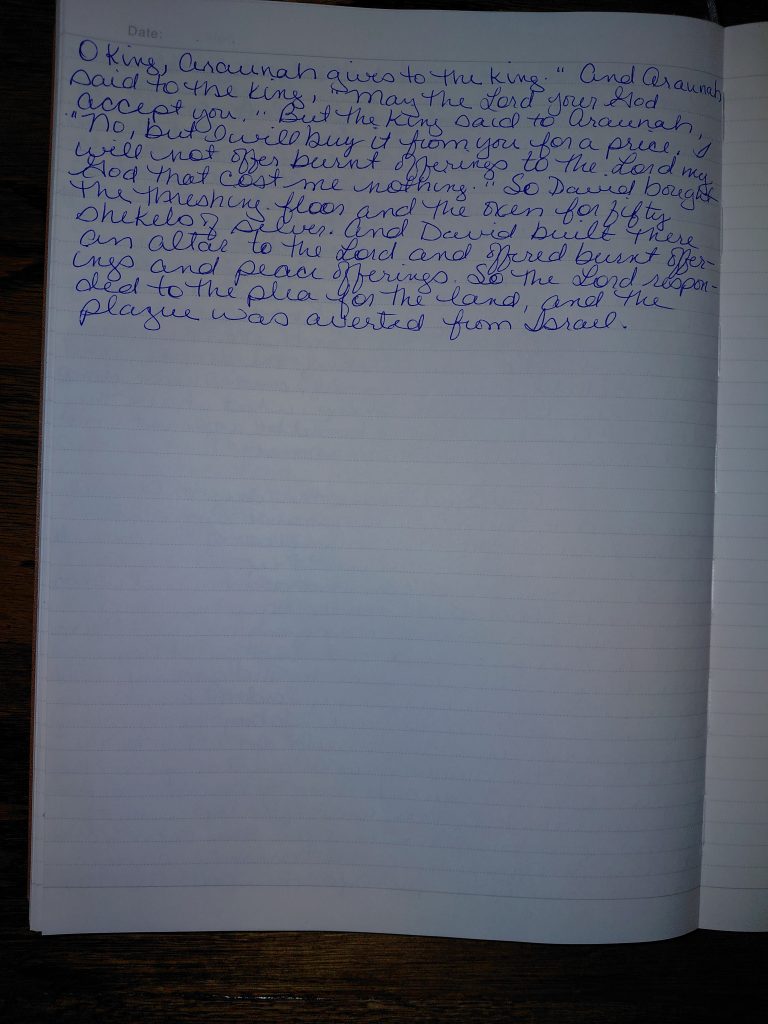 Date:
O King, Araunah gives to the king." And Araunah
said to the king, "May the Lord your God
accept you." But the king said to Araunah,
"No, but I will buy it from you for a price. I
will not offer burnt offerings to the Lord my
God that cost me nothing." So David bought
the threshing floor and the oxen for fifty
shekels of silver. And David built there
an altar to the Lord and offered burnt offer-
ings and peace offerings. So the Lord respon-
ded to the plea for the land, and the
plague was averted from Israel.